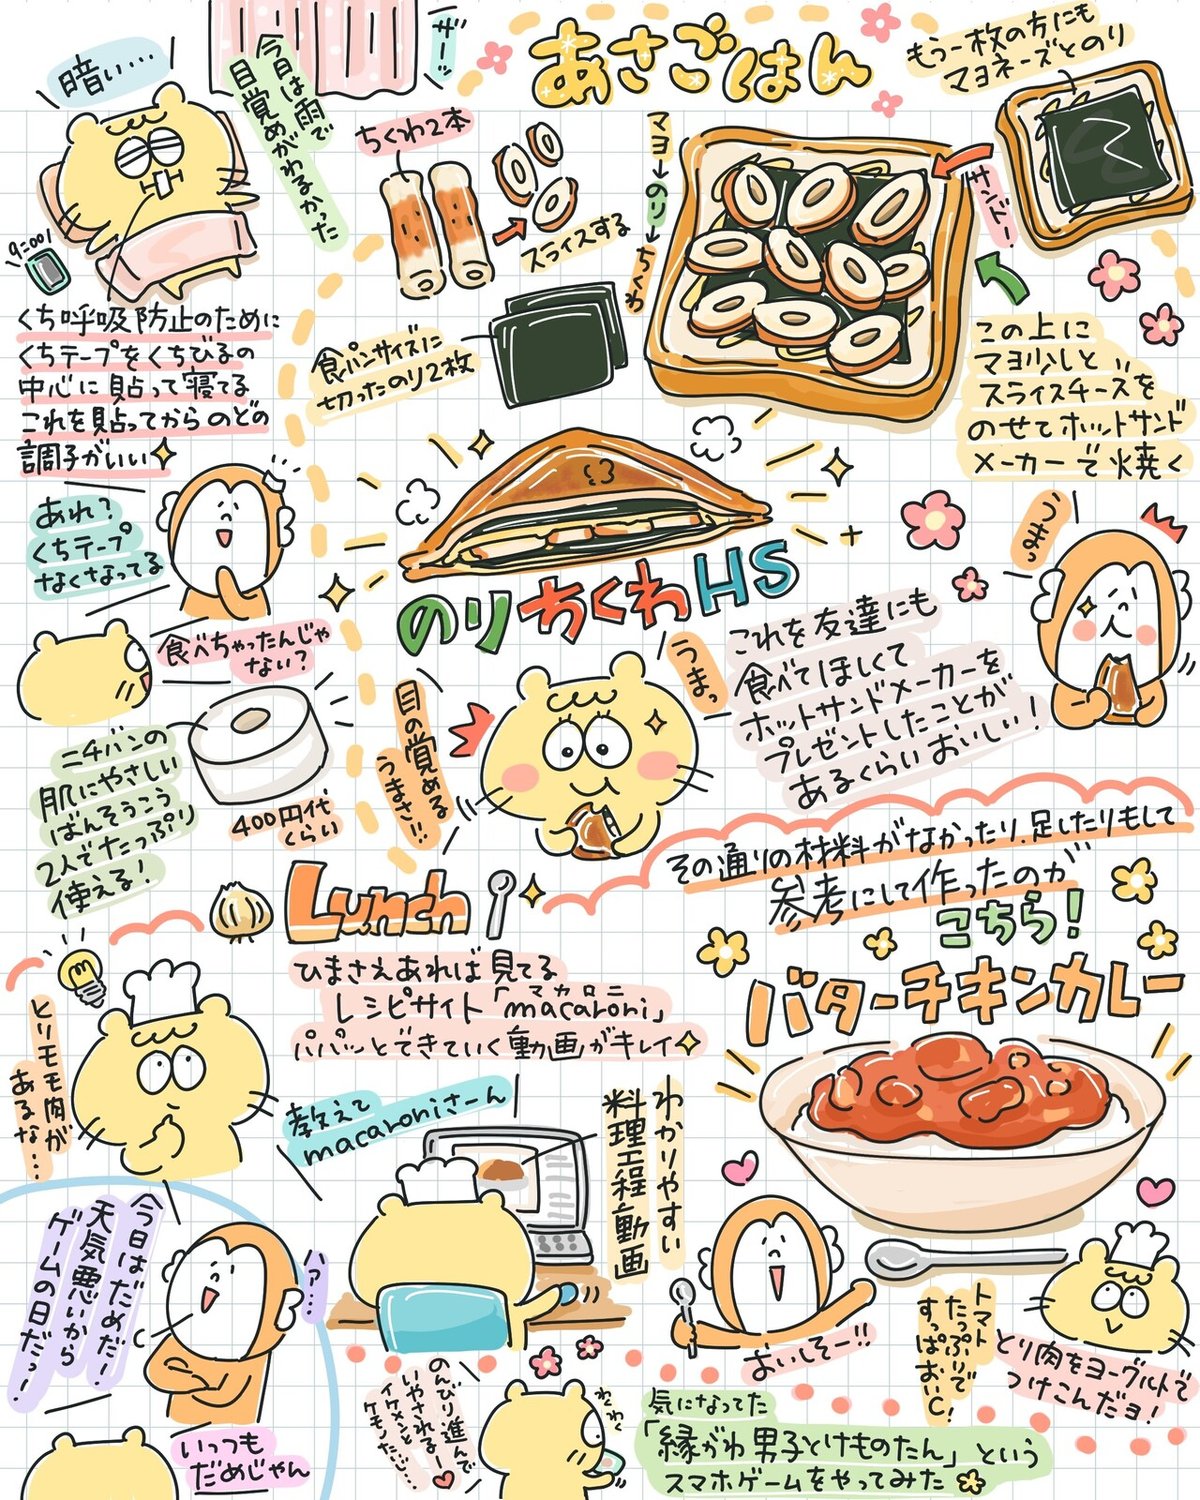 暗い…
今日は雨で
目覚めがわるかった
ザーッ
くち呼吸防止のために
くちテープをくちびるの
中心に貼って寝てる
これを貼ってからのどの
調子がいい
あれ?
くちテープ
なくなってる
食べちゃったんじゃ
ない?
ニチバンの
肌にやさしい
ばんそうこう
2人でたっぷり
使える!
400円代
くらい
あさごはん
ちくわ2本
スライスする
食パンサイズに
切ったのり2枚
マヨ→のり→ちくわ
もう一枚の方にも
マヨネーズとのり
サンド!
この上に
マヨ少しと
スライスチーズを
のせてホットサンド
メーカーで焼く
のりちくわHS
目の覚める
うまさ!!
うまっ
これを友達にも
食べてほしくて
ホットサンドメーカーを
プレゼントしたことが
あるくらいおいしい!
うまっ
Lunch
ひまさえあれば見てる
レシピサイト「macaroni」
マカロニ
パパッとできていく動画がキレイ
とりモモ肉が
あるな…
教えて
macaroniさーん
わかりやすい
料理工程動画
その通りの材料がなかったり、足したりもして
参考にして作ったのが
こちら!
バターチキンカレー
おいしそー!!
トマト
たっぷりで
すっぱおいC!
とり肉をヨーグルトで
つけこんだヨ!
今日はだめだー
天気悪いから
ゲームの日だっ!
ハァ…
いっつも
だめじゃん
のんびり進んで
いやされる〜
イケメンと
わくわく
気になってた
「縁がわ男子とけものたん」という
スマホゲームをやってみた